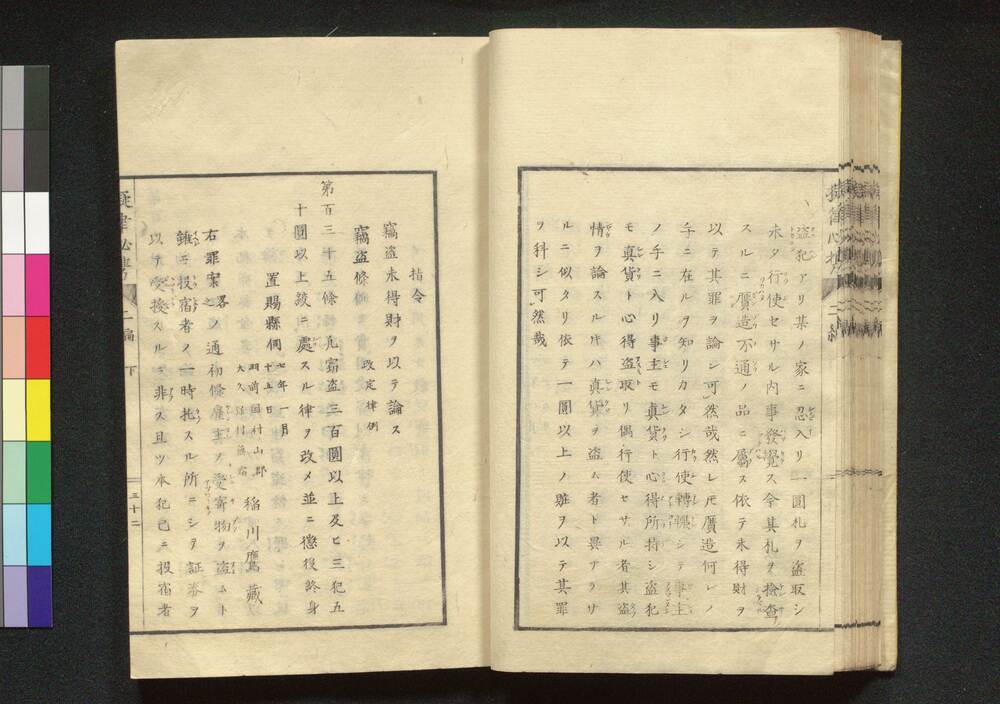 盗犯アリ某ノ家ニ忍入リ一圓札ヲ盗取シ
未タ行使セサル内事發覺ス今其札ヲ檢査
スルニ贋造不通ノ品ニ屬ス依テ未得財ヲ
以テ其罪ヲ論シ可然哉然レ𪜈贋造何レノ
手ニ在ルヲ知リカタシ行使轉換シテ事主
ノ手ニ入リ事主モ真貨ト心得所持シ盗犯
モ真貨ト心得盗取リ偶行使セサル者其盗
情ヲ論スル𪜈ハ真貨ヲ盗ム者ト異ナラサ
ルニ似タリ依テ一圓以上ノ賍ヲ以テ其罪
ヲ科シ可然哉
指令
竊盗未得財ヲ以テ論ス
竊盗條例 改定律例
第百三十五條 凡竊盗三百圓以上及ヒ三犯五
十圓以上絞ニ處スル律ヲ改メ並ニ懲役終身
置賜縣伺 七年一月十五日
羽前國村山郡
稲川鷹藏
右罪案之畧ノ通初條雇主ノ受寄物ヲ盗ムト
雖モ投宿者ノ一時托スル所ニシテ証券ヲ
以テ受授スルニ非ス且ツ本犯已ニ投宿者
擬律必携 二編 下
三十二